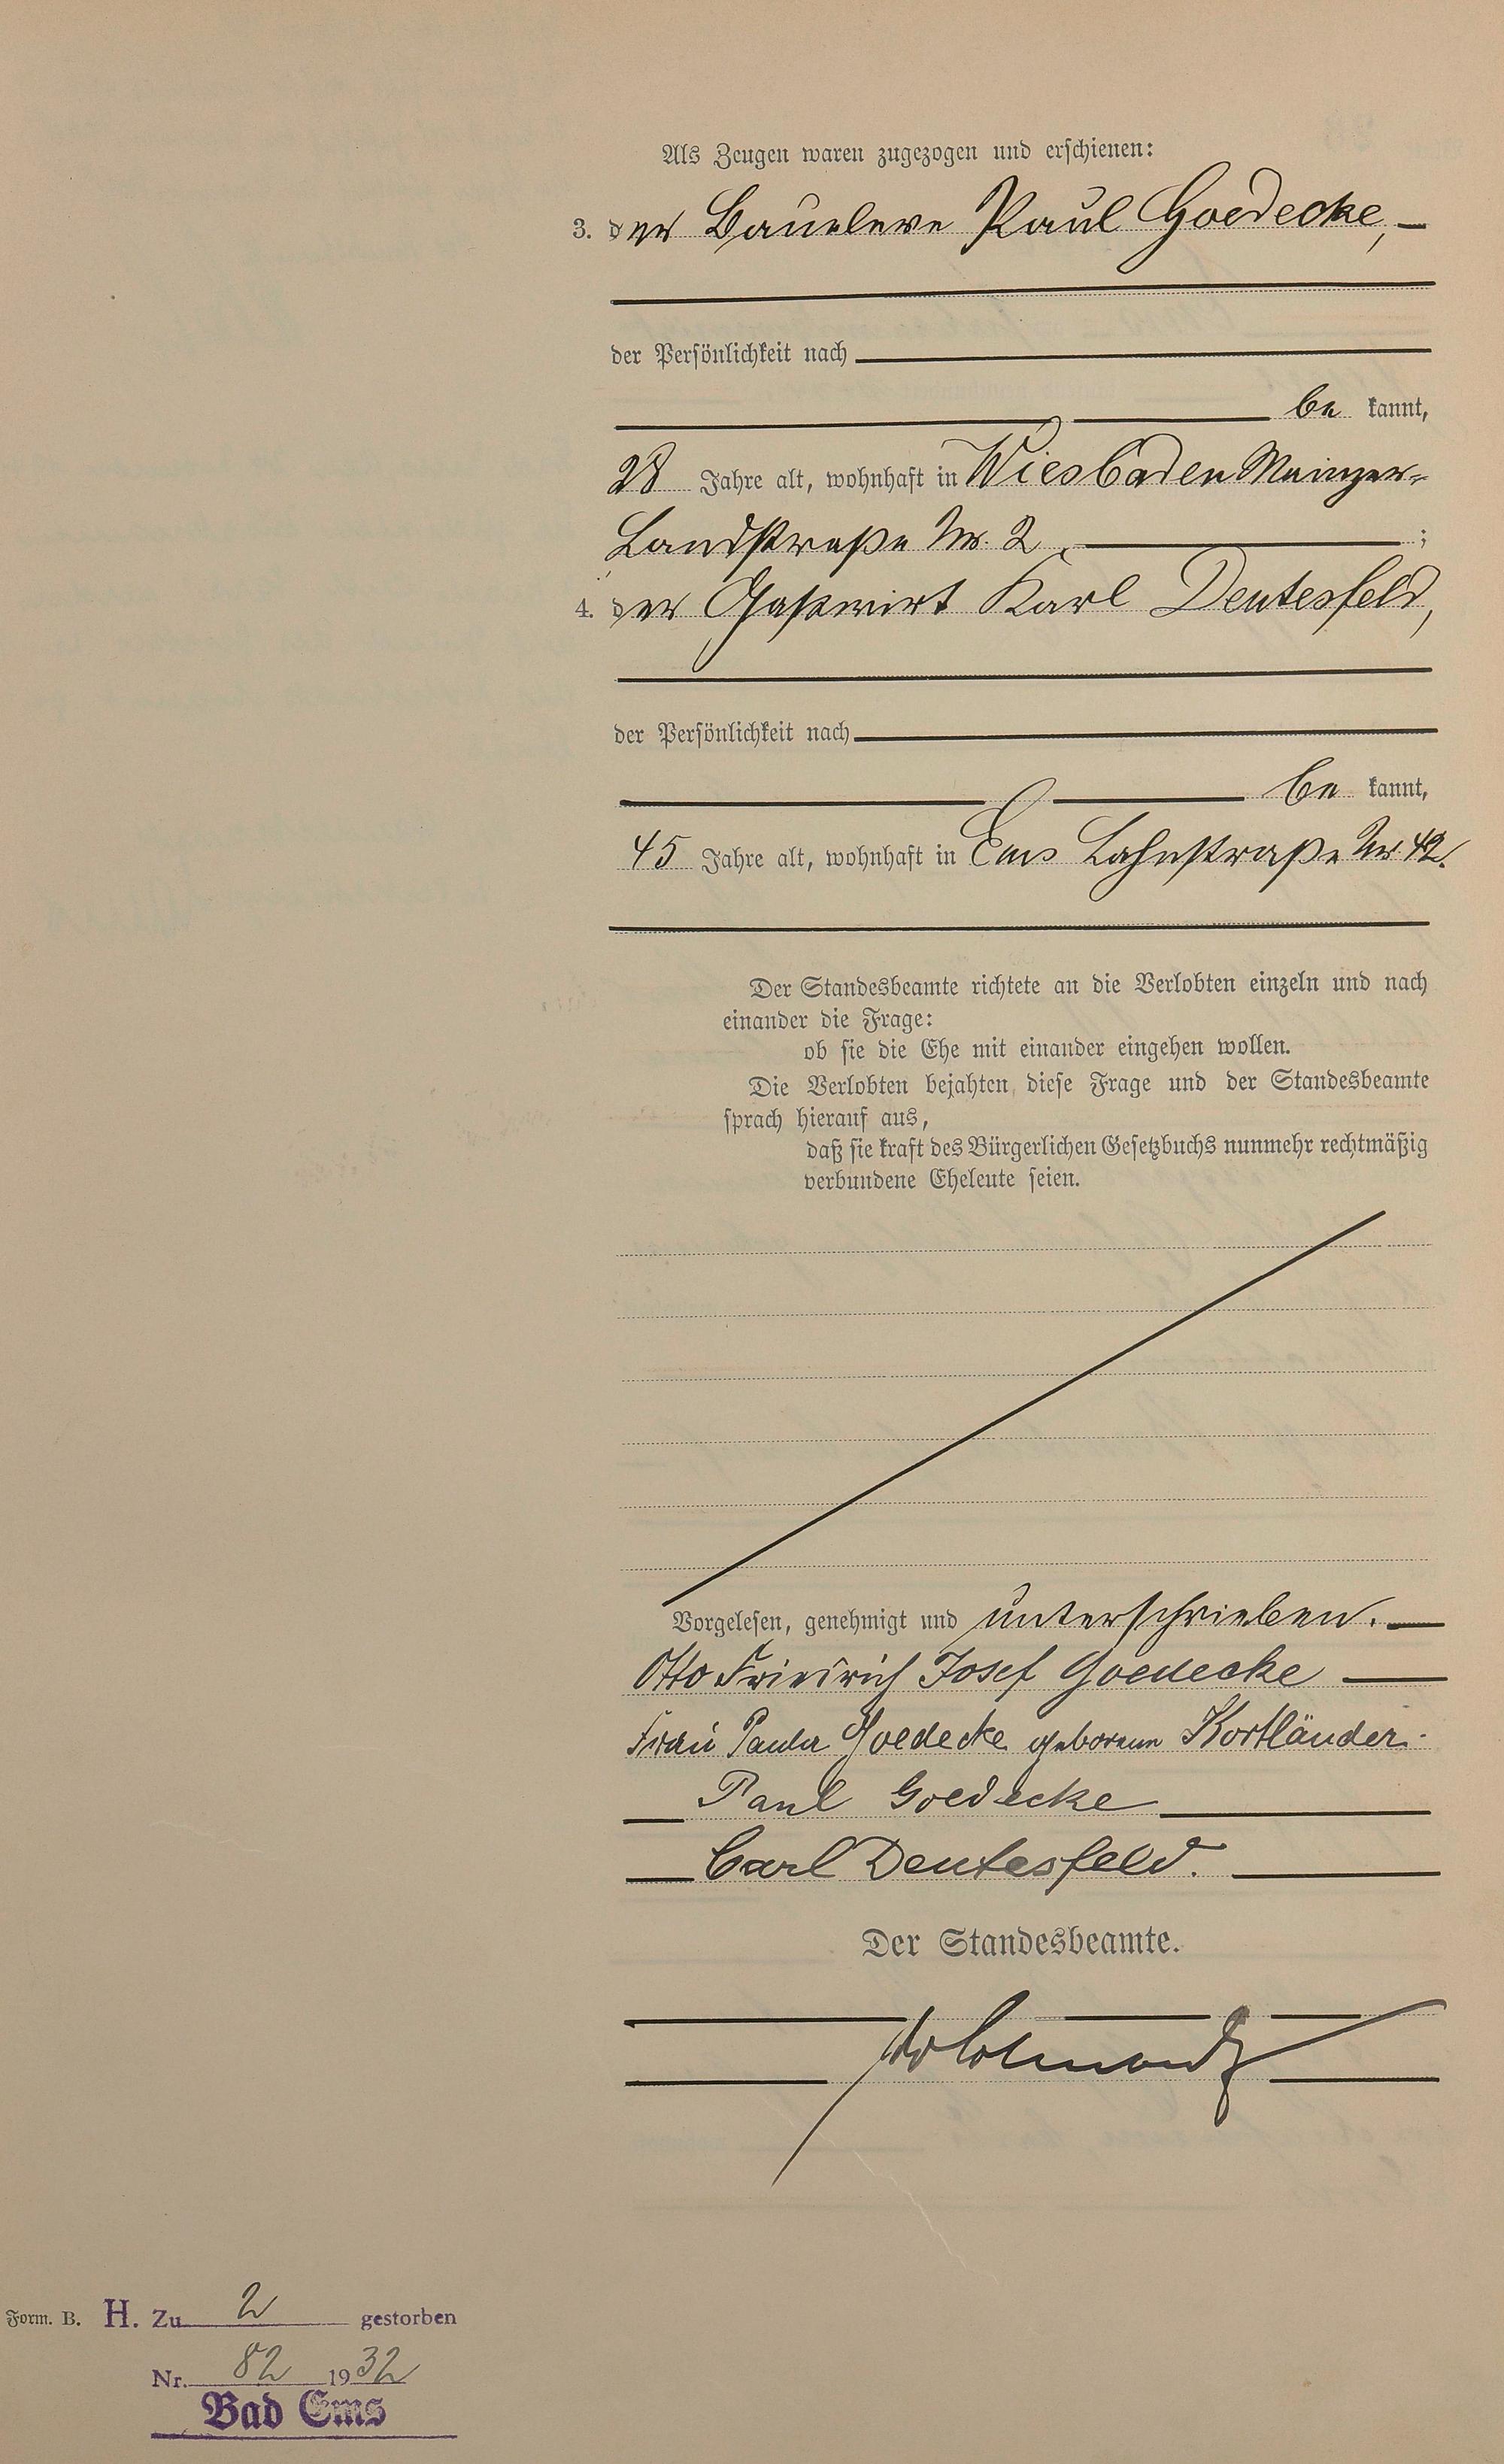 Als Zeugen waren zugezogen und erschienen:
3. der Baueleve Paul Goedecke,
der Persönlichkeit nach
be kannt,
28 Jahre alt, wohnhaft in Wiesbaden Mainzer-
Landstraße Nr. 2 ;
4. der Gastwirt Karl Deutesfeld,
der Persönlichkeit nach
be kannt,
45 Jahre alt, wohnhaft in Ems Lahnstraße Nr 42.
Der Standesbeamte richtete an die Verlobten einzeln und nach
einander die Frage:
ob sie die Ehe mit einander eingehen wollen.
Die Verlobten bejahten diese Frage und der Standesbeamte
sprach hierauf aus,
daß sie kraft des Bürgerlichen Gesetzbuchs nunmehr rechtmäßig
verbundene Eheleute seien.
Vorgelesen, genehmigt und unterschrieben.
Otto Friedrich Josef Goedecke
Frau Paula Goedecke geborene Kortländer.
Paul Goedecke
Carl Deutesfeld.
Der Standesbeamte.
Form. B. H. Zu 2 gestorben
Nr. 82 1932
Bad Ems